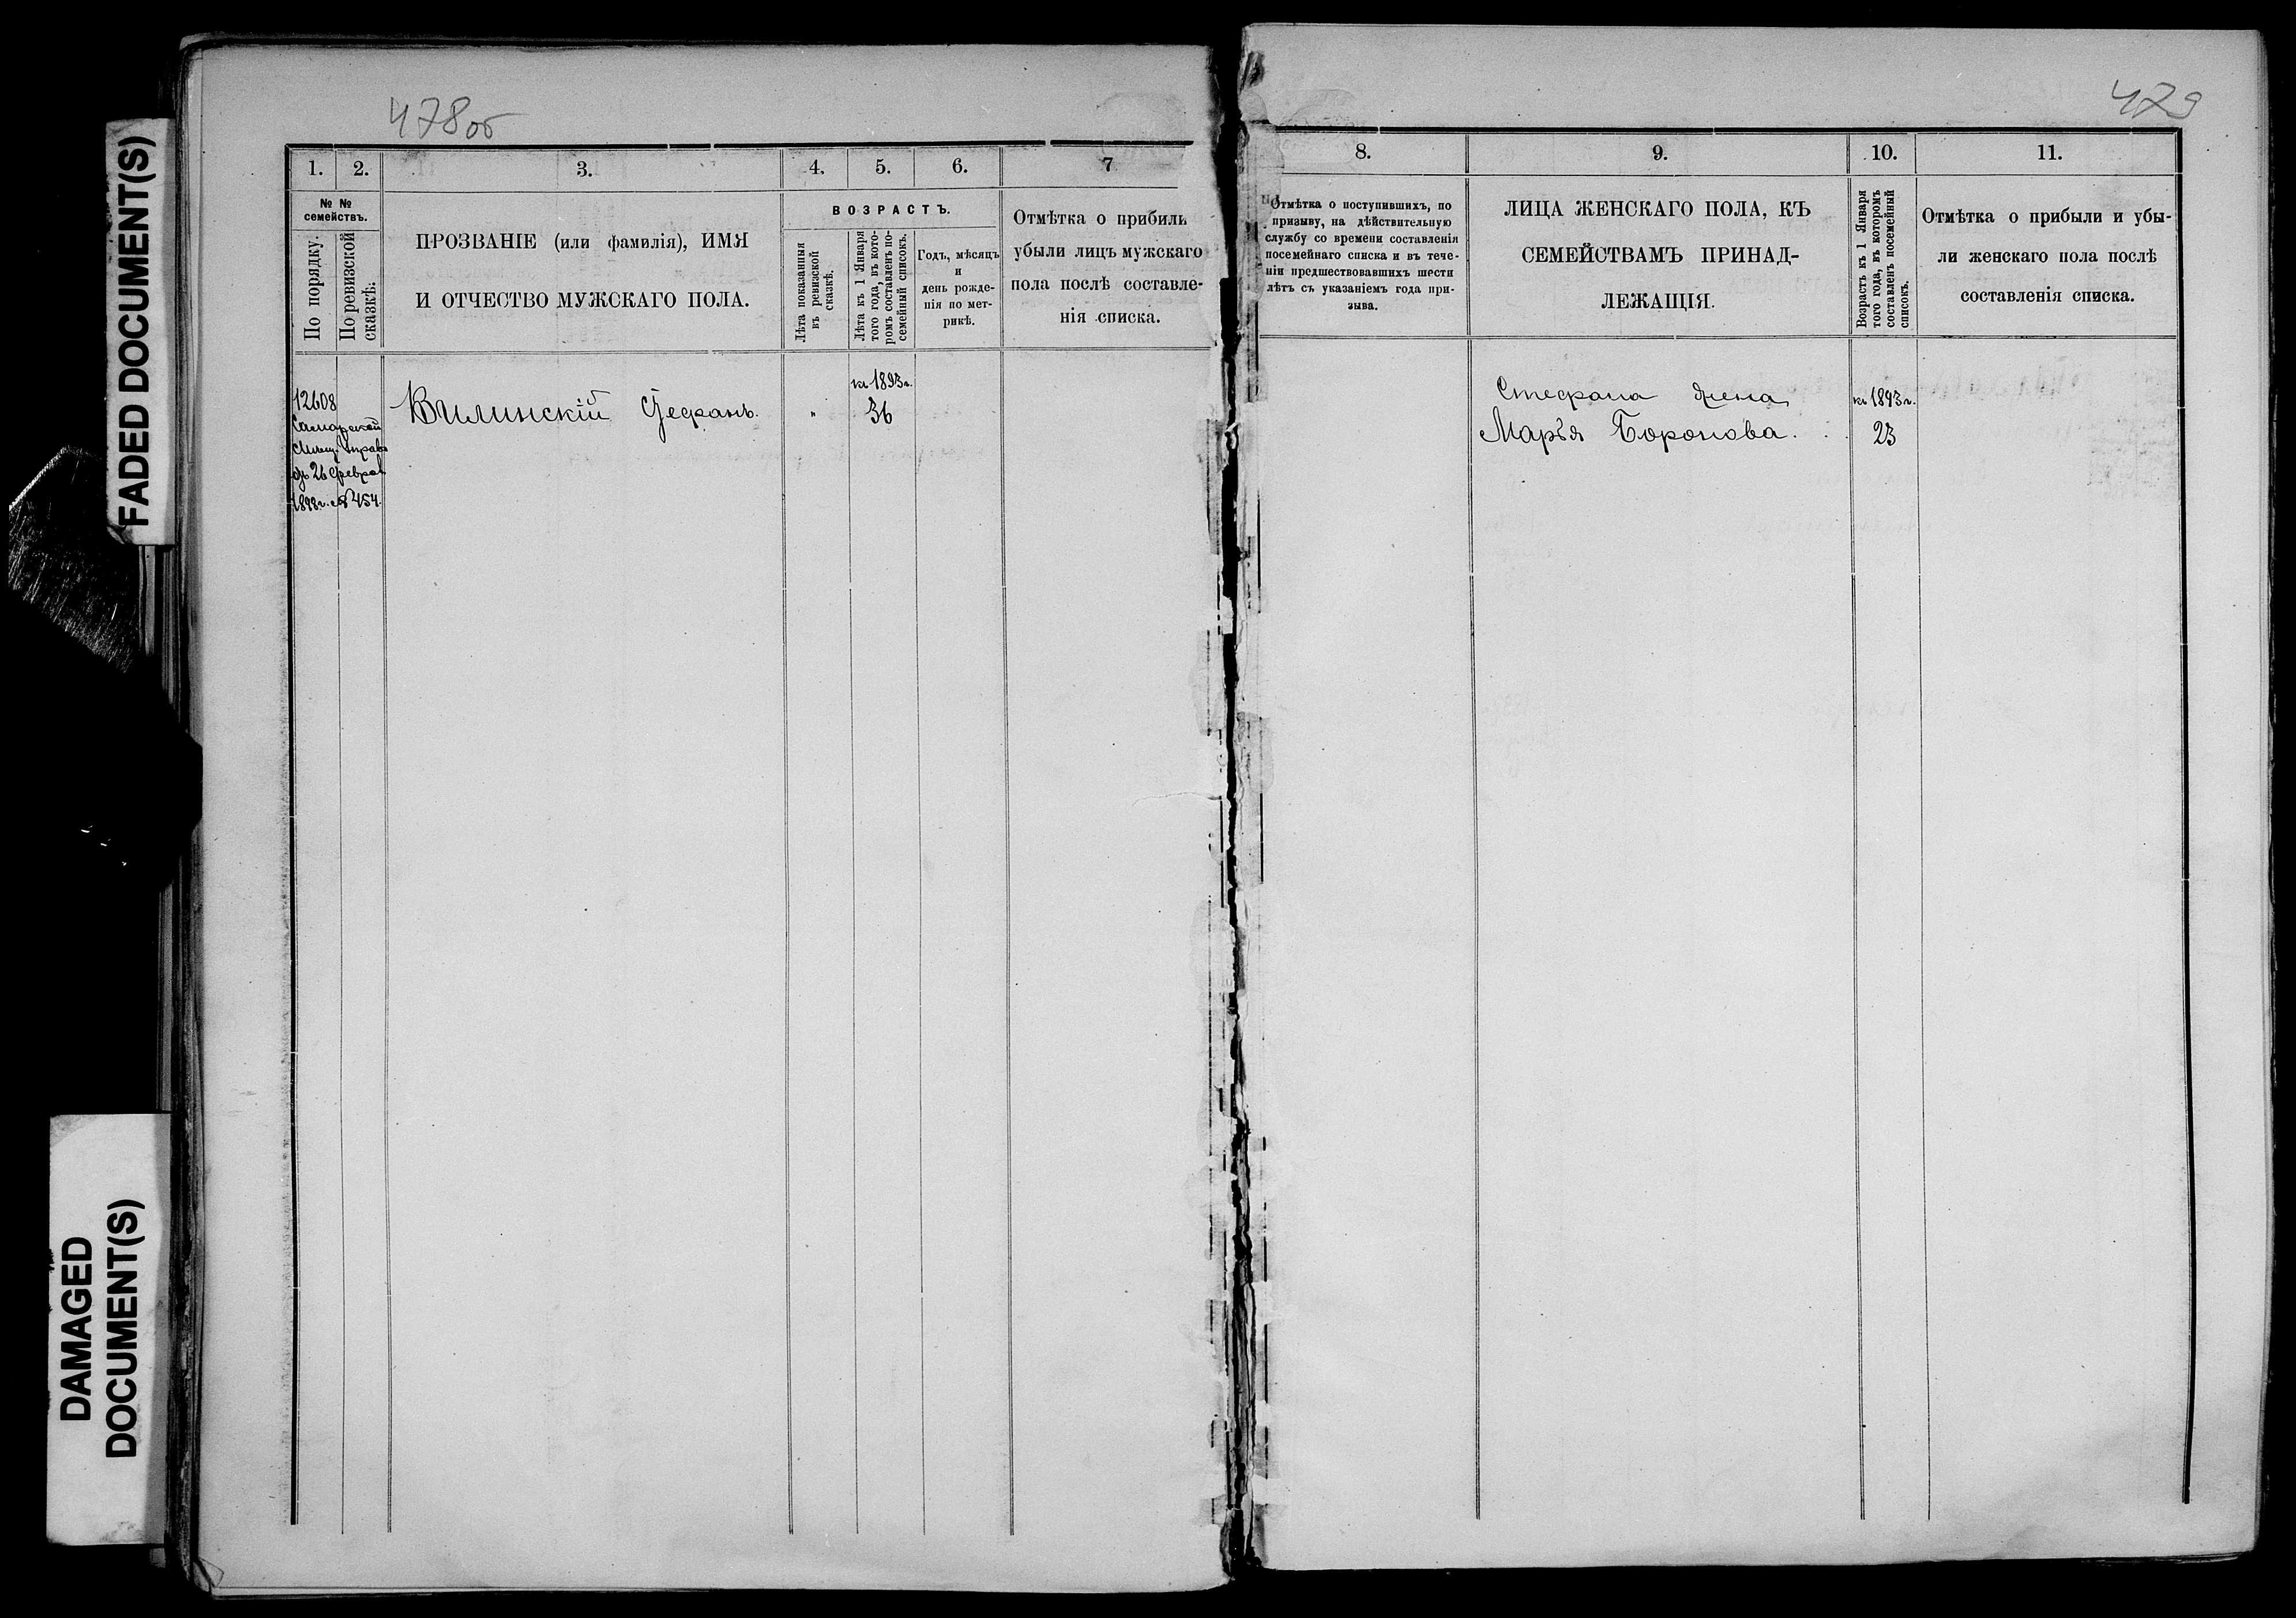 FADED DOCUMENT(S)
DAMAGED
DOCUMENT(S)
478об
1. 2. 3. 4. 5. 6. 7
№ №
семействъ.
По порядку.
По ревизской
сказкѣ.
ПРОЗВАНІЕ (или фамилія), ИМЯ
И ОТЧЕСТВО МУЖСКАГО ПОЛА.
ВОЗРАСТЪ.
Лѣта показанныя
въ ревизской
сказкѣ.
Лѣта къ 1 Января
того года, въ кото-
ромъ составленъ по-
семейный списокъ.
Годъ, мѣсяцъ
и
день рожде-
нія по мет-
рикѣ.
Отмѣтка о прибили
убыли лицъ мужскаго
пола послѣ составле-
нія списка.
12608
Самарской
Мѣщ. Управы
отъ 26 Феврал
1893г. № 454.
Вилинскій Стефанъ.
"
къ 1893г.
36
479
8. 9. 10. 11.
Отмѣтка о поступившихъ, по
призыву, на дѣйствительную
службу со времени составленія
посемейнаго списка и въ тече-
ніи предшествовавшихъ шести
лѣтъ съ указаніемъ года при-
зыва.
ЛИЦА ЖЕНСКАГО ПОЛА, КЪ
СЕМЕЙСТВАМЪ ПРИНАД-
ЛЕЖАЩІЯ.
Возрастъ къ 1 Января
того года, въ которомъ
составленъ посемейный
списокъ.
Отмѣтка о прибыли и убы-
ли женскаго пола послѣ
составленія списка.
Стефана жена
Марья Боронова.
къ 1893г.
23